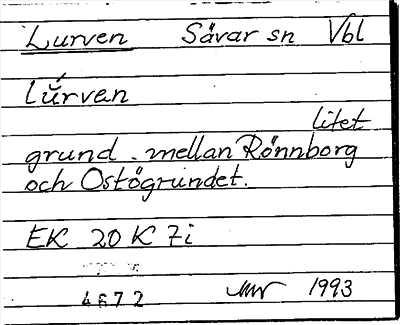 Lurven Sävar sn Vbl
lŭ́rvan
litet
grund. mellan Rönnborg
och Ostögrundet.
EK 20 K 7i
4672 1993